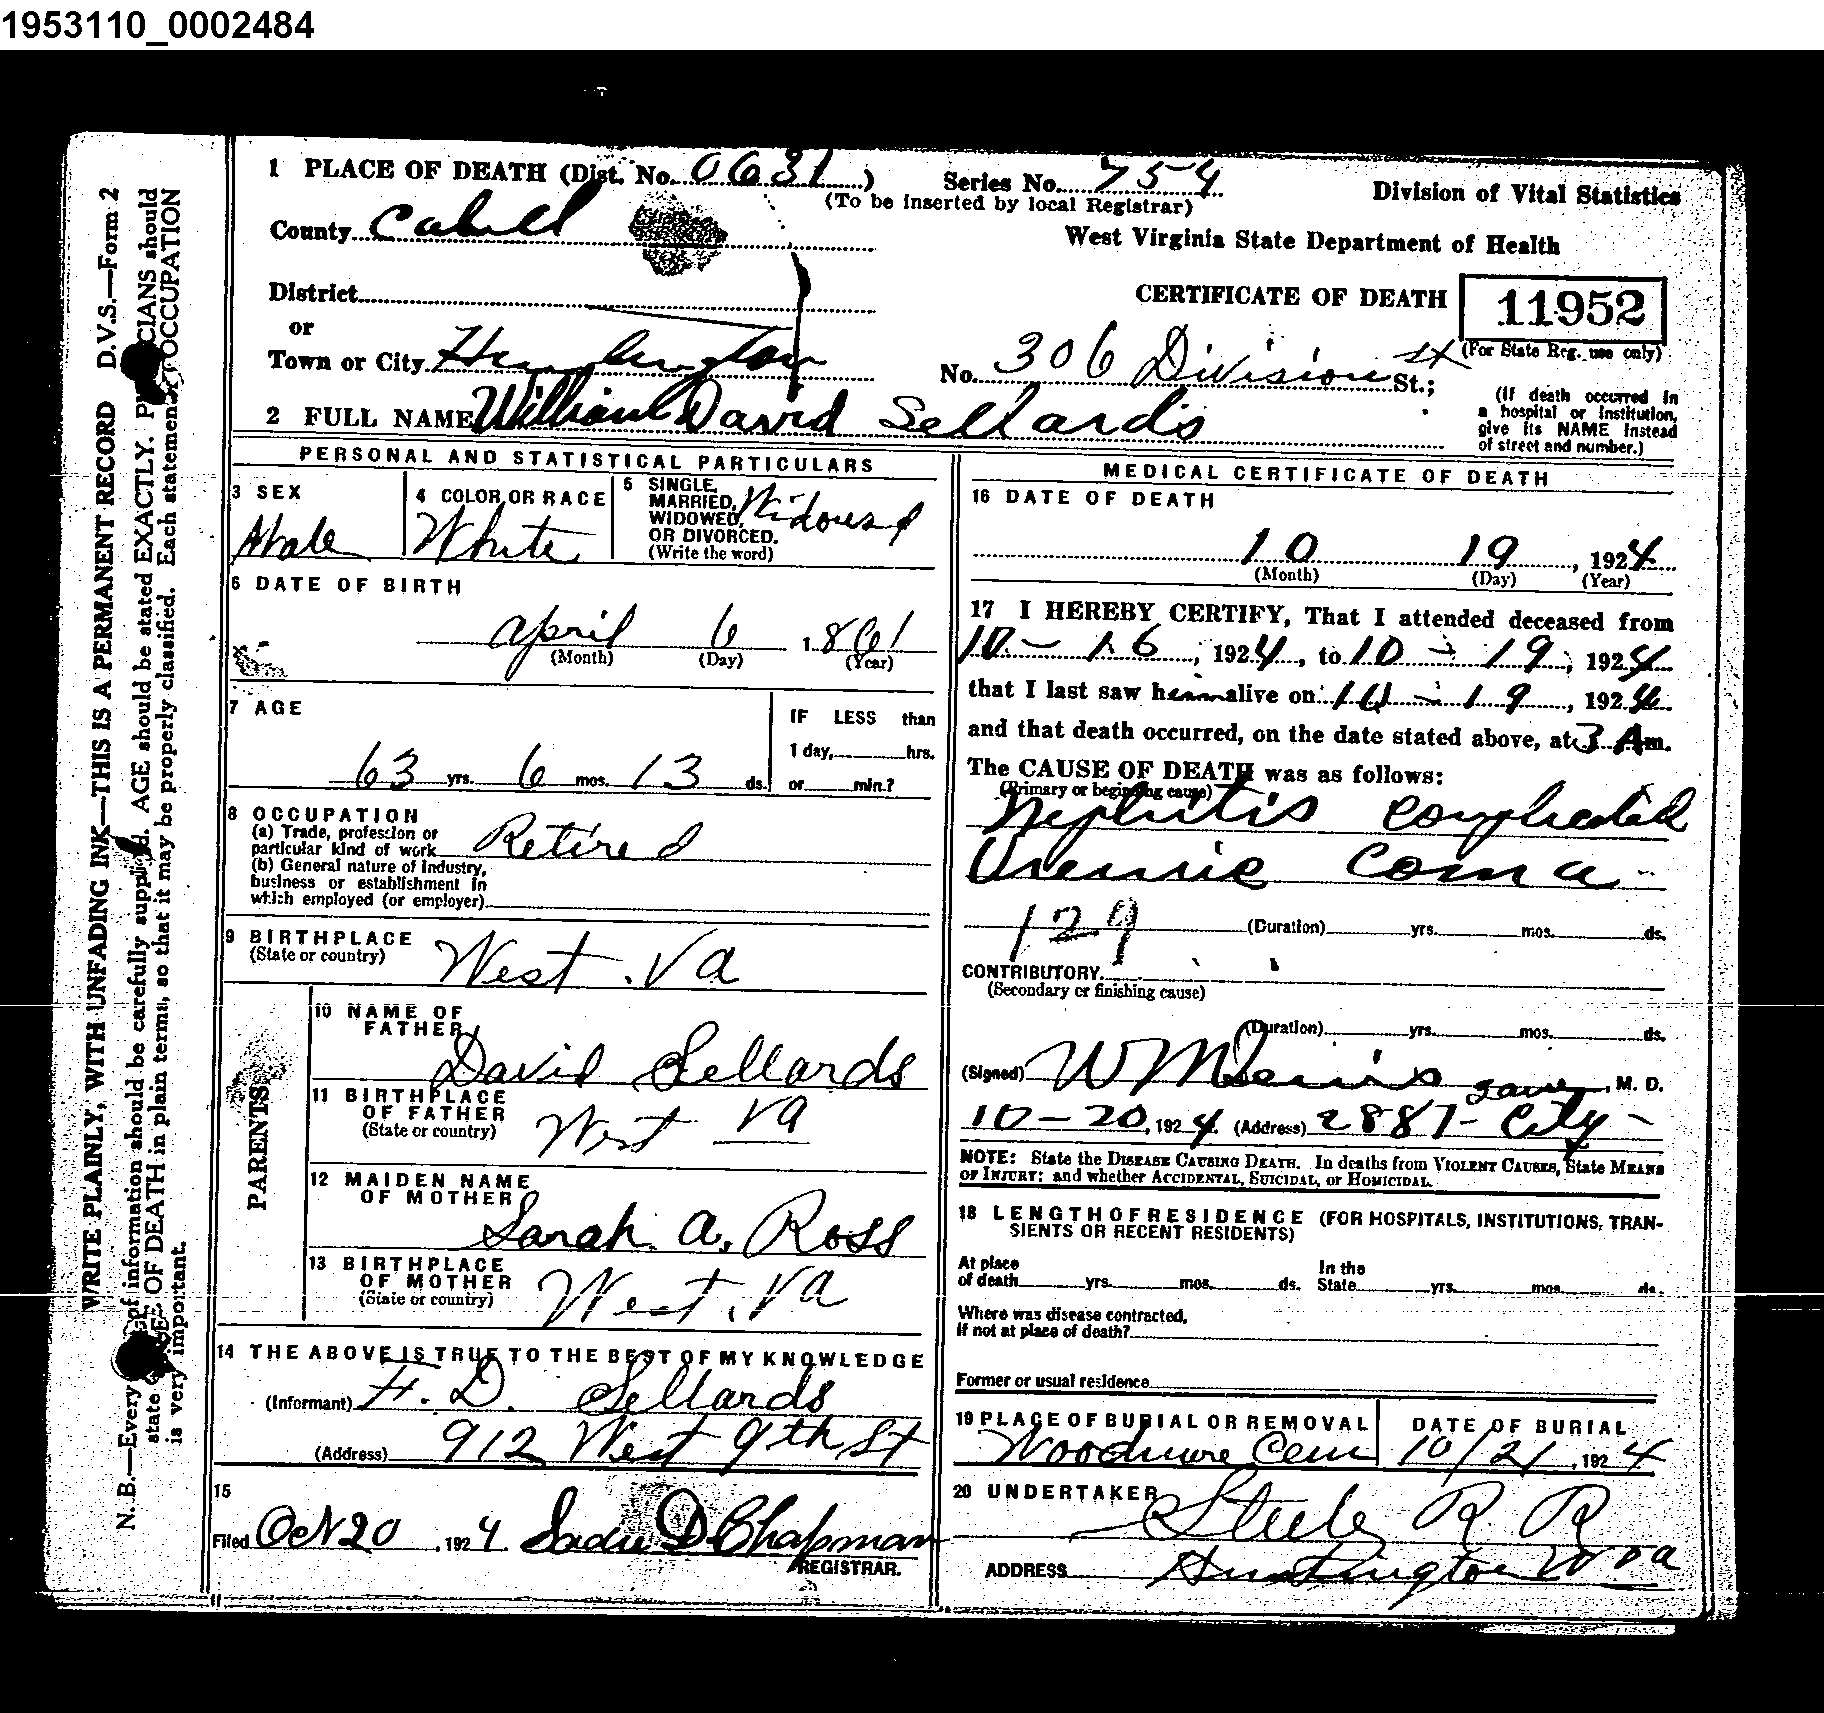 1953110_0002484
1 PLACE OF DEATH (Dist. No. 0631)
Series No. 754
(To be inserted by local Registrar)
Division of Vital Statistics
County Cabell
West Virginia State Department of Health
District
CERTIFICATE OF DEATH
11952
(For State Reg. use only)
or
Town or City Huntington
No. 306 Division St St.;
(If death occurred in
a hospital or institution,
give its NAME instead
of street and number.)
2 FULL NAME William David Sellards
PERSONAL AND STATISTICAL PARTICULARS
3 SEX
Male
4 COLOR OR RACE
White
5 SINGLE,
MARRIED,
WIDOWED,
OR DIVORCED.
(Write the word)
Widowed
6 DATE OF BIRTH
April 6 1861
(Month) (Day) (Year)
7 AGE
63 yrs. 6 mos. 13 ds.
IF LESS than
1 day, hrs.
or min.?
8 OCCUPATION
(a) Trade, profession or
particular kind of work Retired
(b) General nature of industry,
business or establishment in
which employed (or employer)
9 BIRTHPLACE
(State or country)
West Va
PARENTS
10 NAME OF
FATHER
David Sellards
11 BIRTHPLACE
OF FATHER
(State or country)
West Va
12 MAIDEN NAME
OF MOTHER
Sarah A. Ross
13 BIRTHPLACE
OF MOTHER
(State or country)
West. Va
14 THE ABOVE IS TRUE TO THE BEST OF MY KNOWLEDGE
(Informant) H. D. Sellards
(Address) 912 West 9th St
15
Filed Oct 20, 1924 Sadie D Chapman
REGISTRAR.
MEDICAL CERTIFICATE OF DEATH
16 DATE OF DEATH
10 19, 1924
(Month) (Day) (Year)
17 I HEREBY CERTIFY, That I attended deceased from
10 - 16, 1924, to 10 - 19, 1924
that I last saw him alive on 10 - 19, 1924
and that death occurred, on the date stated above, at 3 A m.
The CAUSE OF DEATH was as follows:
(Primary or beginning cause)
Nephritis complicated
Uremic Coma
129
(Duration) yrs. mos. ds.
CONTRIBUTORY
(Secondary or finishing cause)
(Duration) yrs. mos. ds.
(Signed) W M , M. D.
10-20, 1924 (Address) 2887- City -
NOTE: State the DISEASE CAUSING DEATH. In deaths from VIOLENT CAUSES, State MEANS
OF INJURY; and whether ACCIDENTAL, SUICIDAL, or HOMICIDAL.
18 LENGTH OF RESIDENCE (FOR HOSPITALS, INSTITUTIONS, TRAN-
SIENTS OR RECENT RESIDENTS)
At place
of death yrs. mos. ds.
In the
State yrs. mos. ds.
Where was disease contracted,
If not at place of death?
Former or usual residence
19 PLACE OF BURIAL OR REMOVAL
Woodmere Cem
DATE OF BURIAL
10/21, 1924
20 UNDERTAKER
Steele R R
ADDRESS Huntington W Va
WRITE PLAINLY, WITH UNFADING INK—THIS IS A PERMANENT RECORD D.V.S.—Form 2
N. B.—Every of information should be carefully supplied. AGE should be stated EXACTLY. PHYSICIANS should
state CAUSE OF DEATH in plain terms, so that it may be properly classified. Each statement of OCCUPATION
is very important.